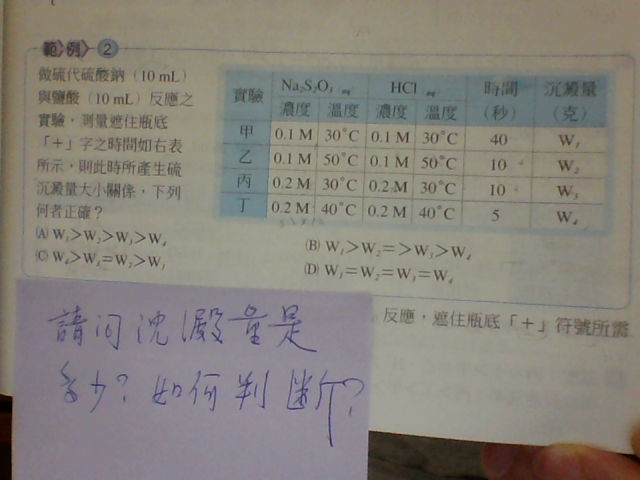 範例 2
做硫代硫酸鈉（10 mL）
與鹽酸（10 mL）反應之
實驗，測量遮住瓶底
「+」字之時間如右表
所示，則此時所產生硫
沉澱量大小關係，下列
何者正確？
實驗 Na₂S₂O₃ aq HCl aq 時間（秒） 沉澱量（克）
濃度 溫度 濃度 溫度
甲 0.1 M 30°C 0.1 M 30°C 40 W₁
乙 0.1 M 50°C 0.1 M 50°C 10 W₂
丙 0.2 M 30°C 0.2 M 30°C 10 W₃
丁 0.2 M 40°C 0.2 M 40°C 5 W₄
(A) W₁>W₂>W₃>W₄
(B) W₁>W₂=>W₃>W₄
(C) W₄>W₃=W₂>W₁
(D) W₁=W₂=W₃=W₄
反應，遮住瓶底「+」符號所需
請問沈澱量是
多少？如何判斷？